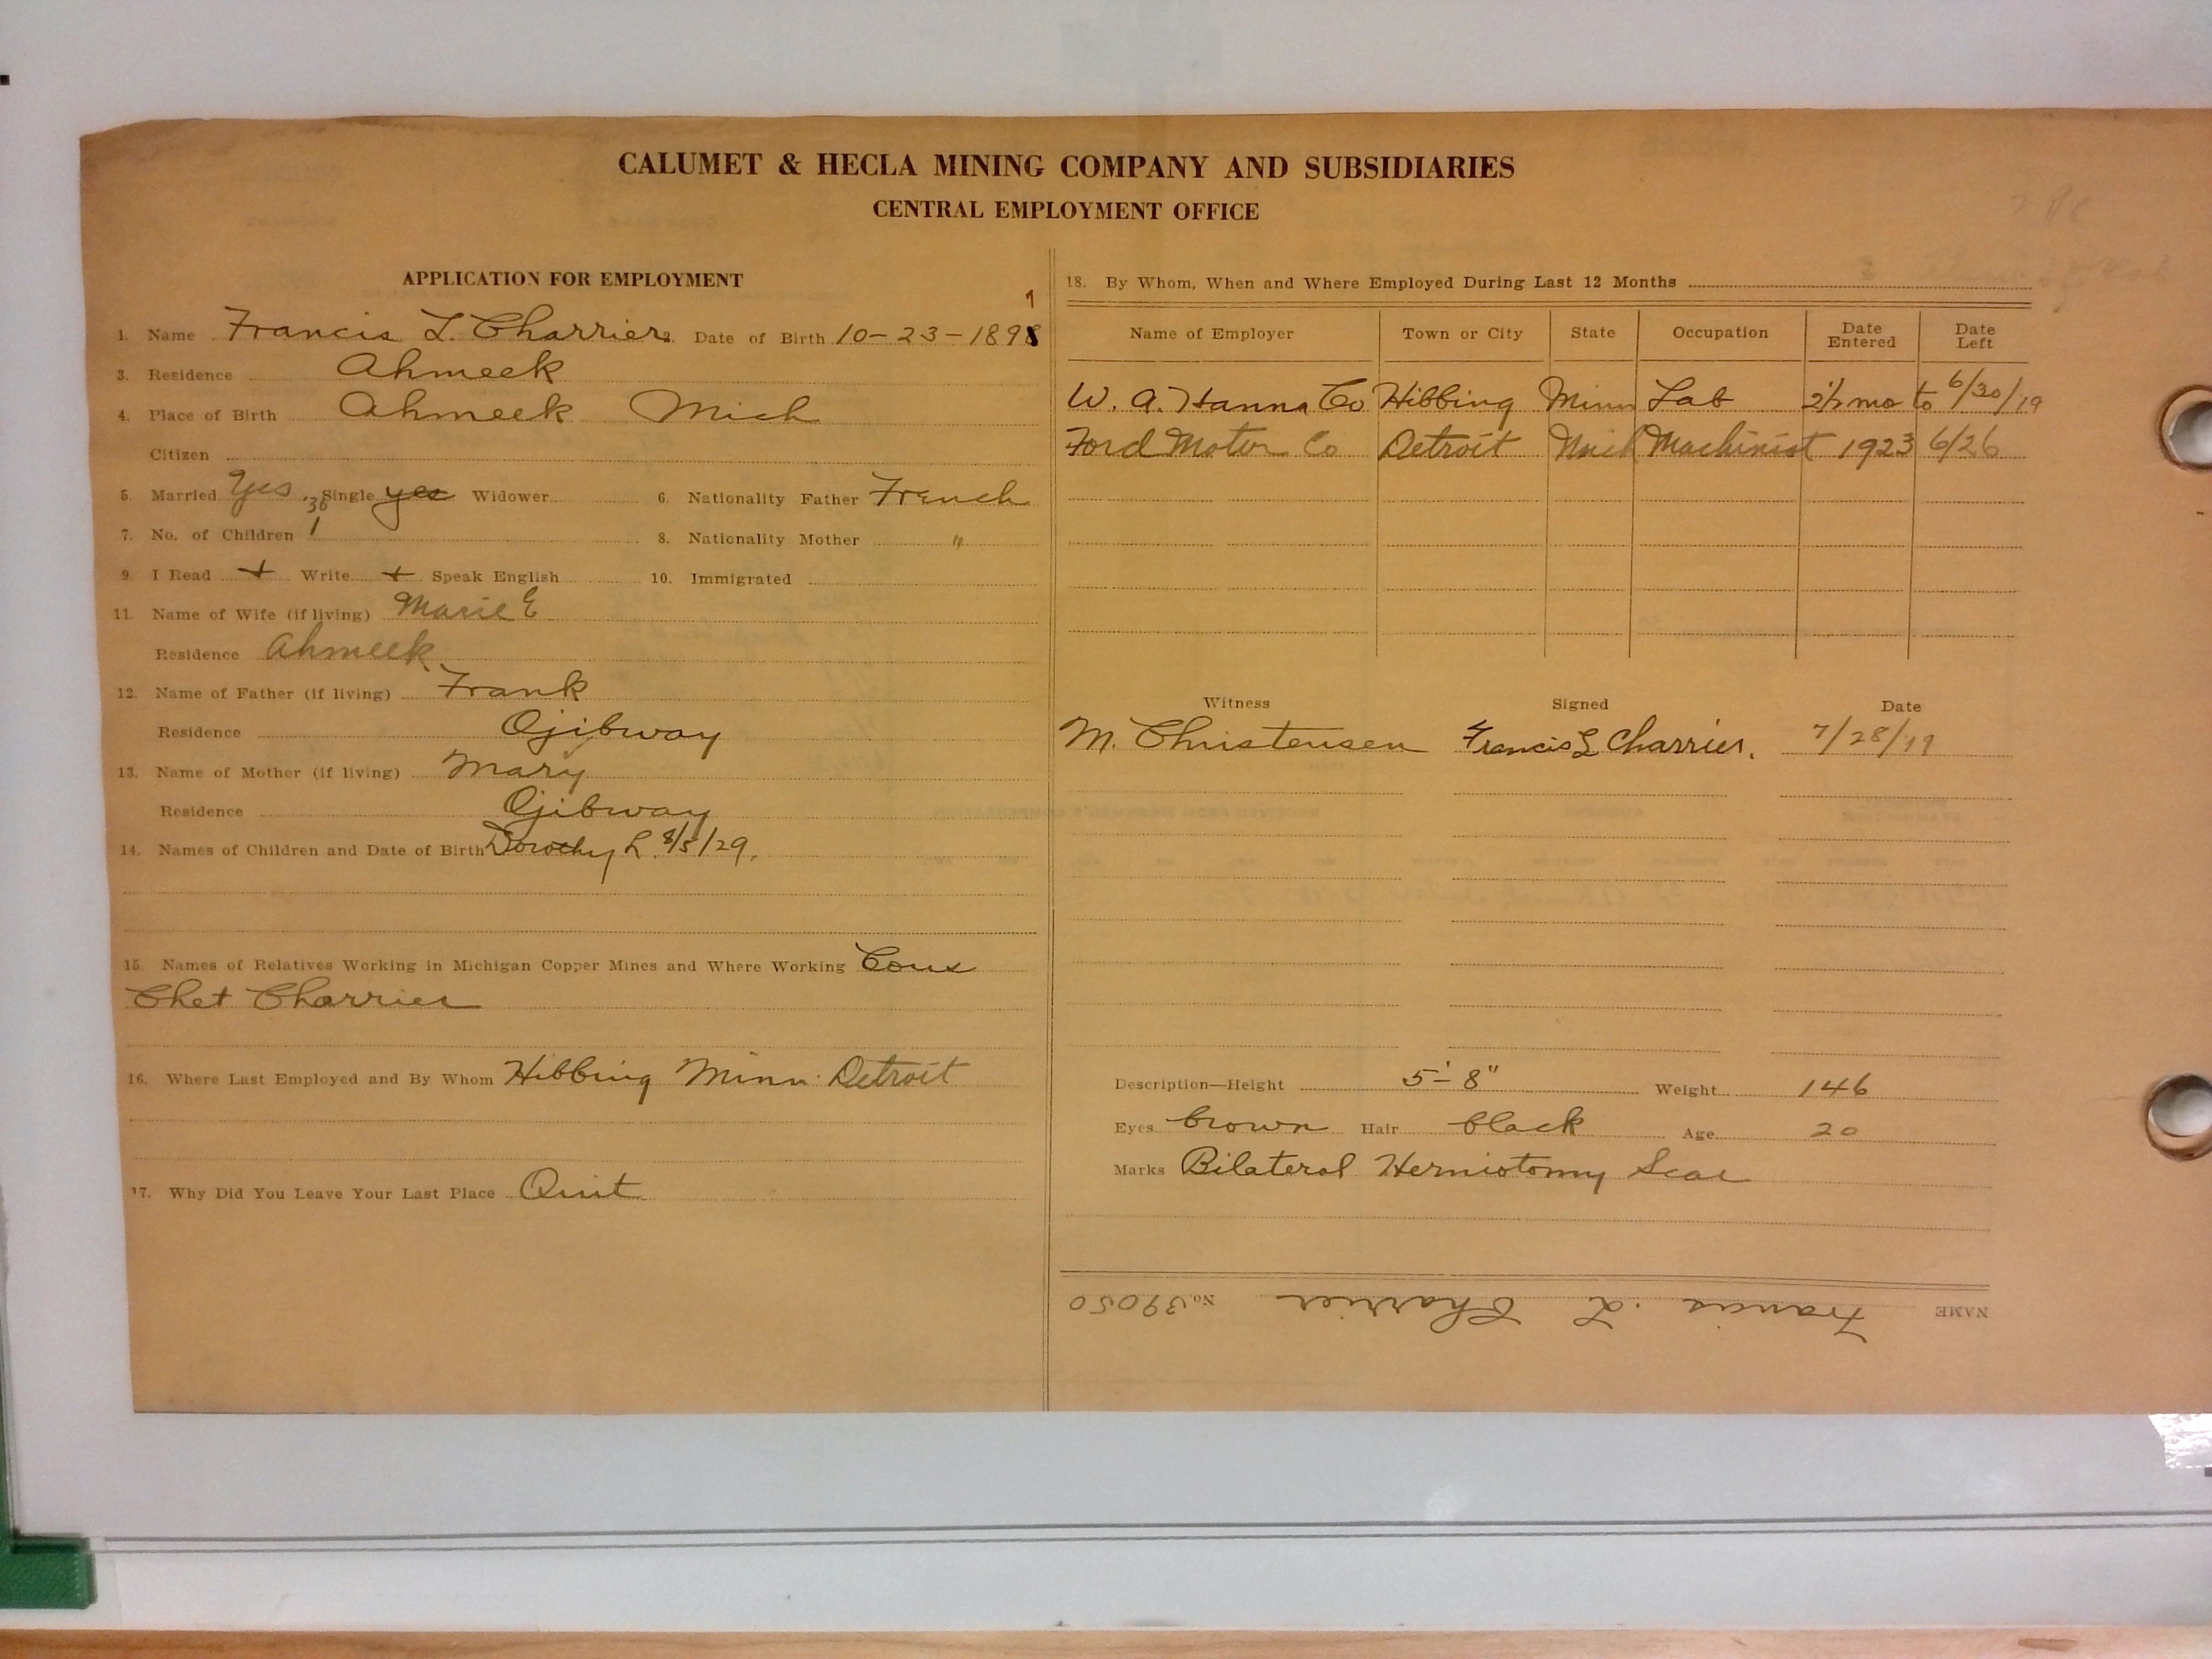 CALUMET & HECLA MINING COMPANY AND SUBSIDIARIES
CENTRAL EMPLOYMENT OFFICE
APPLICATION FOR EMPLOYMENT
1. Name Francis L. Charrier. Date of Birth 10-23-1898
3. Residence Ahmeek
4. Place of Birth Ahmeek Mich
Citizen
5. Married Yes Single yes Widower 6. Nationality Father French
7. No. of Children 1 8. Nationality Mother "
9. I Read + Write + Speak English 10. Immigrated
11. Name of Wife (if living) Marie E
Residence Ahmeek
12. Name of Father (if living) Frank
Residence Ojibway
13. Name of Mother (if living) Mary
Residence Ojibway
14. Names of Children and Date of Birth Dorothy L. 8/5/29.
15. Names of Relatives Working in Michigan Copper Mines and Where Working Cous
Chet Charrier
16. Where Last Employed and By Whom Hibbing Minn. Detroit
17. Why Did You Leave Your Last Place Quit
18. By Whom, When and Where Employed During Last 12 Months
Name of Employer Town or City State Occupation Date Entered Date Left
W. A. Hanna Co Hibbing Minn Lab 2 1/2 mo to 6/30/19
Ford Motor Co Detroit Mich Machinist 1923 6/26
Witness Signed Date
M. Christensen Francis L Charrier. 7/28/19
Description—Height 5'-8" Weight 146
Eyes brown Hair black Age 20
Marks Bilateral Herniotomy Scar
NAME Francis L. Charrier No. 39050